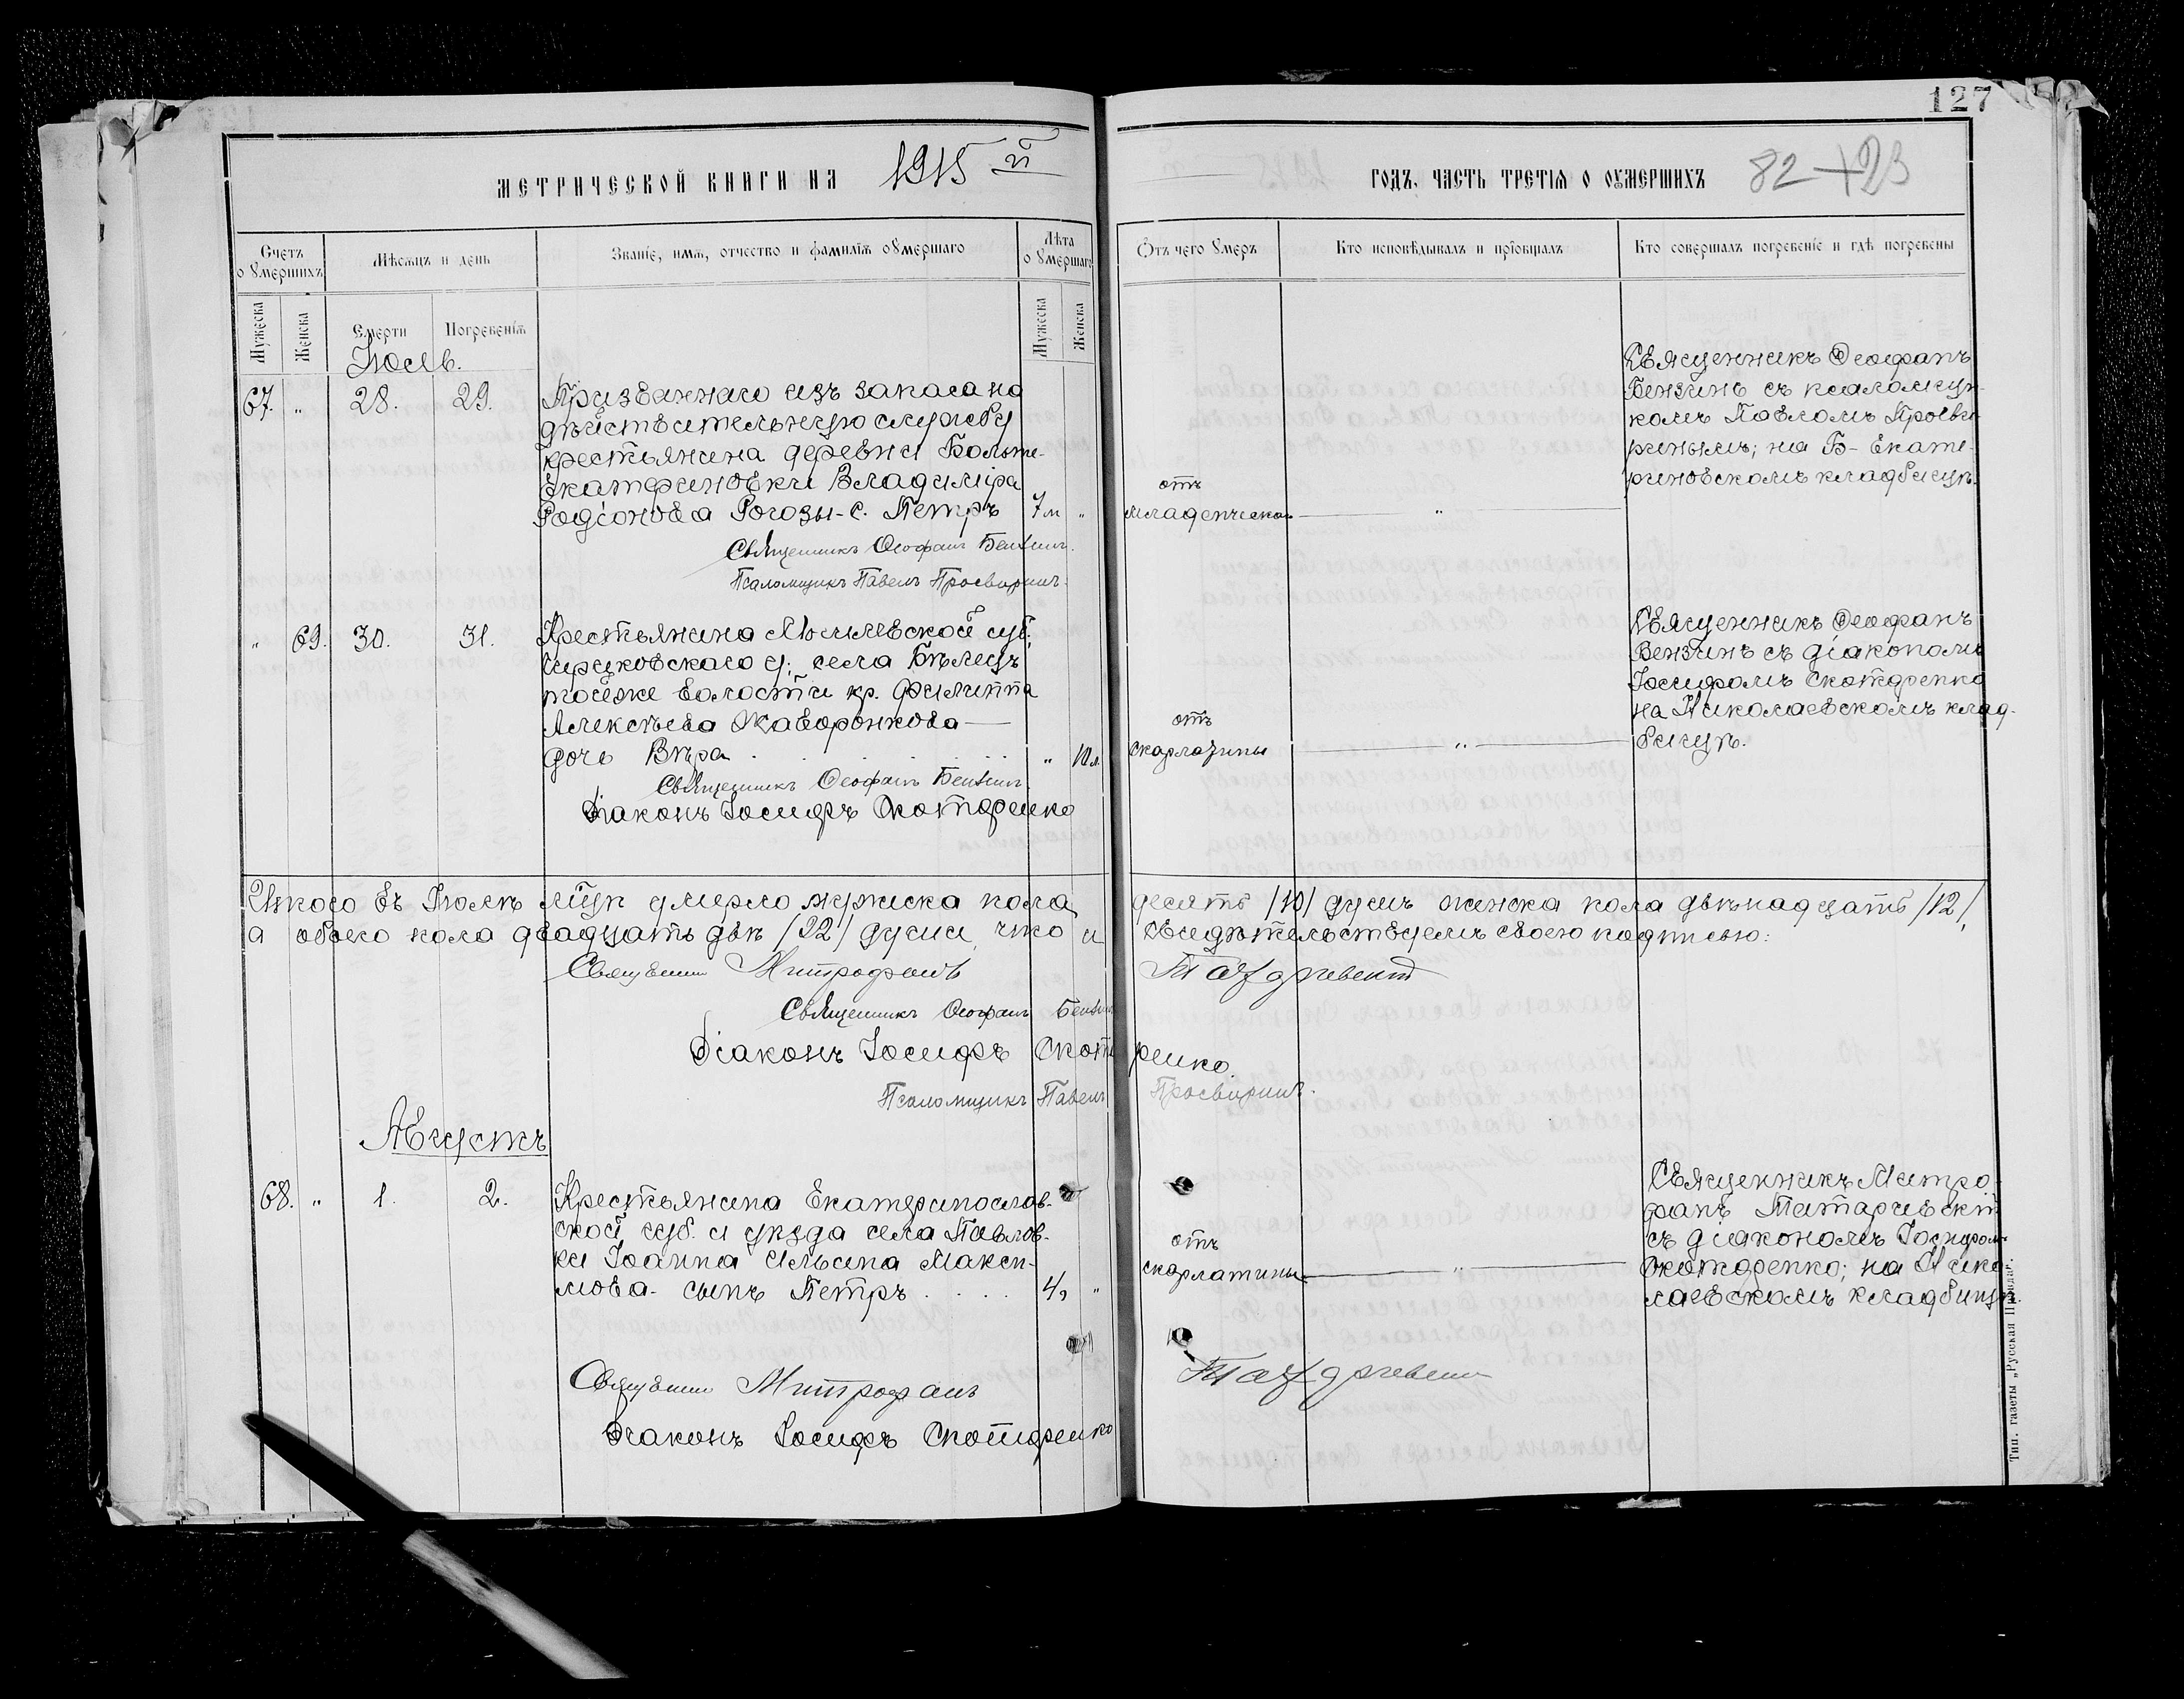 127
МЕТРИЧЕСКОЙ КНИГИ НА 1915 й
ГОДЪ, ЧАСТЬ ТРЕТІЯ О ОУМЕРШИХЪ 82
Счетъ о умершихъ
Мѣсяцъ и день
Званіе, имя, отчество и фамилія оумершаго
Лѣта оумершаго
Отъ чего умеръ
Кто исповѣдывалъ и пріобщалъ
Кто совершалъ погребеніе и гдѣ погребены
Мужеска
Женска
Смерти
Погребенія
Мужеска
Женска
Іюль.
67. „ 28. 29.
Призваннаго изъ запаса на
дѣйствительную службу
крестьянина деревни Больше-
Екатериновки Владиміра
Родіонова Рогозы-с. Петръ 7 м „
отъ
младенческой „
Священникъ Ѳеофанъ
Бензинъ съ псаломщи-
комъ Павломъ Просви-
ринымъ; на Б-Екате-
риновскомъ кладбищѣ.
Священникъ Ѳеофанъ Бензинъ.
Псаломщикъ Павелъ Просвиринъ.
„ 69. 30. 31.
Крестьянина Могилевской губ.
Чириковскаго у; села Бѣлецъ
тойже волости кр. Филиппа
Алексѣева Жаворонкова
дочь Вѣра „ 10 л.
отъ
скарлатины „
Священникъ Ѳеофанъ
Бензинъ съ діакономъ
Іосифомъ Скотаренко
на Николаевскомъ клад-
бищѣ.
Священникъ Ѳеофанъ Бензинъ.
Діаконъ Іосифъ Скотаренко
Итого въ Іюлѣ м҃цѣ умерло мужеска пола десять /10/ душъ женска пола двѣнадцать /12/,
а обоего пола двадцать двѣ /22/ души, что и свидѣтельствуемъ своею подписью:
Священник Митрофанъ
Священникъ Ѳеофанъ Бензинъ
Діаконъ Іосифъ Скотаренко.
Псаломщикъ Павелъ Просвиринъ.
Августъ
68. „ 1. 2.
Крестьянина Екатеринослав-
ской губ. и уѣзда села Павлов-
ки Іоанна Ильина Макси-
мова- сынъ Петръ 4 г „
отъ
скарлатины „
Священникъ Митро-
фанъ
съ діакономъ Іосифомъ
Скотаренко; на Нико-
лаевскомъ кладбищѣ.
Священник Митрофанъ
Діаконъ Іосифъ Скотаренко
Тип. газеты „Русская Правда".